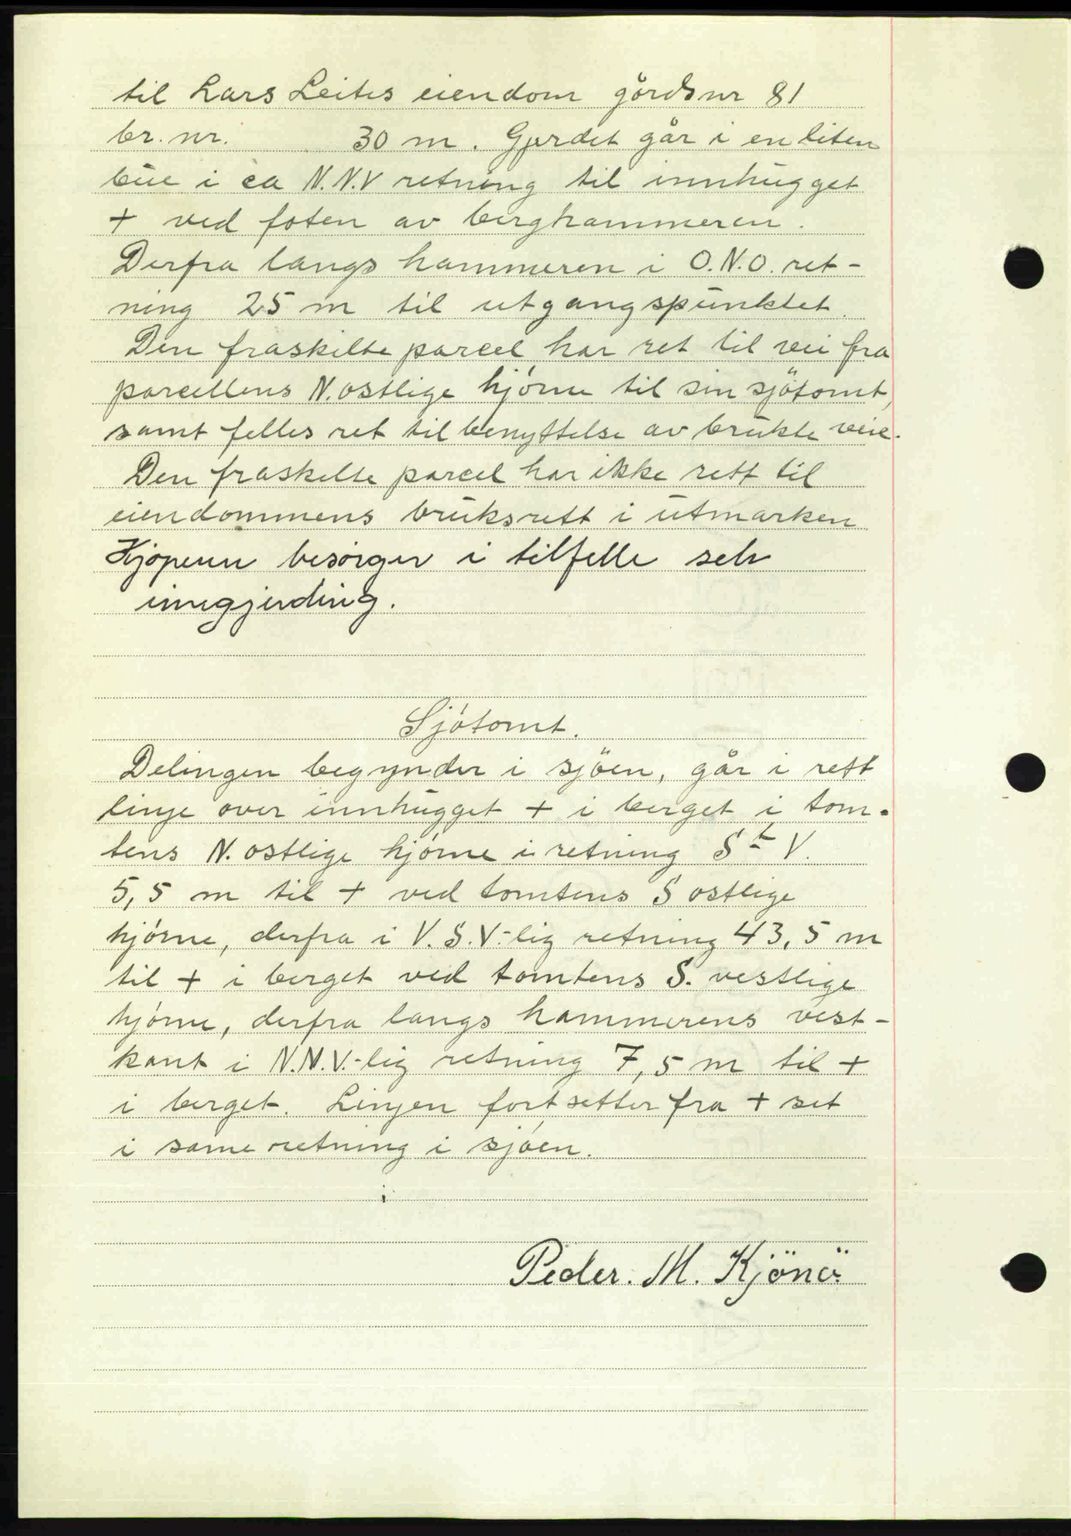 til Lars Leites eiendom gårds nr 81
br. nr. 30 m. Gjerdet går i en liten
bue i ca N.N.V retning til innhugget
+ ved foten av berghammeren.
Derfra langs hammeren i O.N.O. ret-
ning 25 m til utgangspunktet.
Den fraskilte parcel har ret til vei fra
parcellens N. ostlige hjörne til sin sjötomt,
samt felles ret til benyttelse av brukte veie.
Den fraskilte parcel har ikke rett til
eiendommens bruksrett i utmarken
Kjöperen besörger i tilfelle selv
innegjerding.
Sjötomt.
Delingen begynder i sjöen, går i rett
linje over innhugget + i berget i tom-
tens N. ostlige hjörne i retning S t V.
5,5 m til + ved tomtens S ostlige
hjörne, derfra i V.S.V.-lig retning 43,5 m
til + i berget ved tomtens S. vestlige
hjörne, derfra langs hammerens vest-
kant i N.N.V.-lig retning 7,5 m til +
i berget. Linjen fortsetter fra + set
i same retning i sjöen.
Peder. M. Kjönö